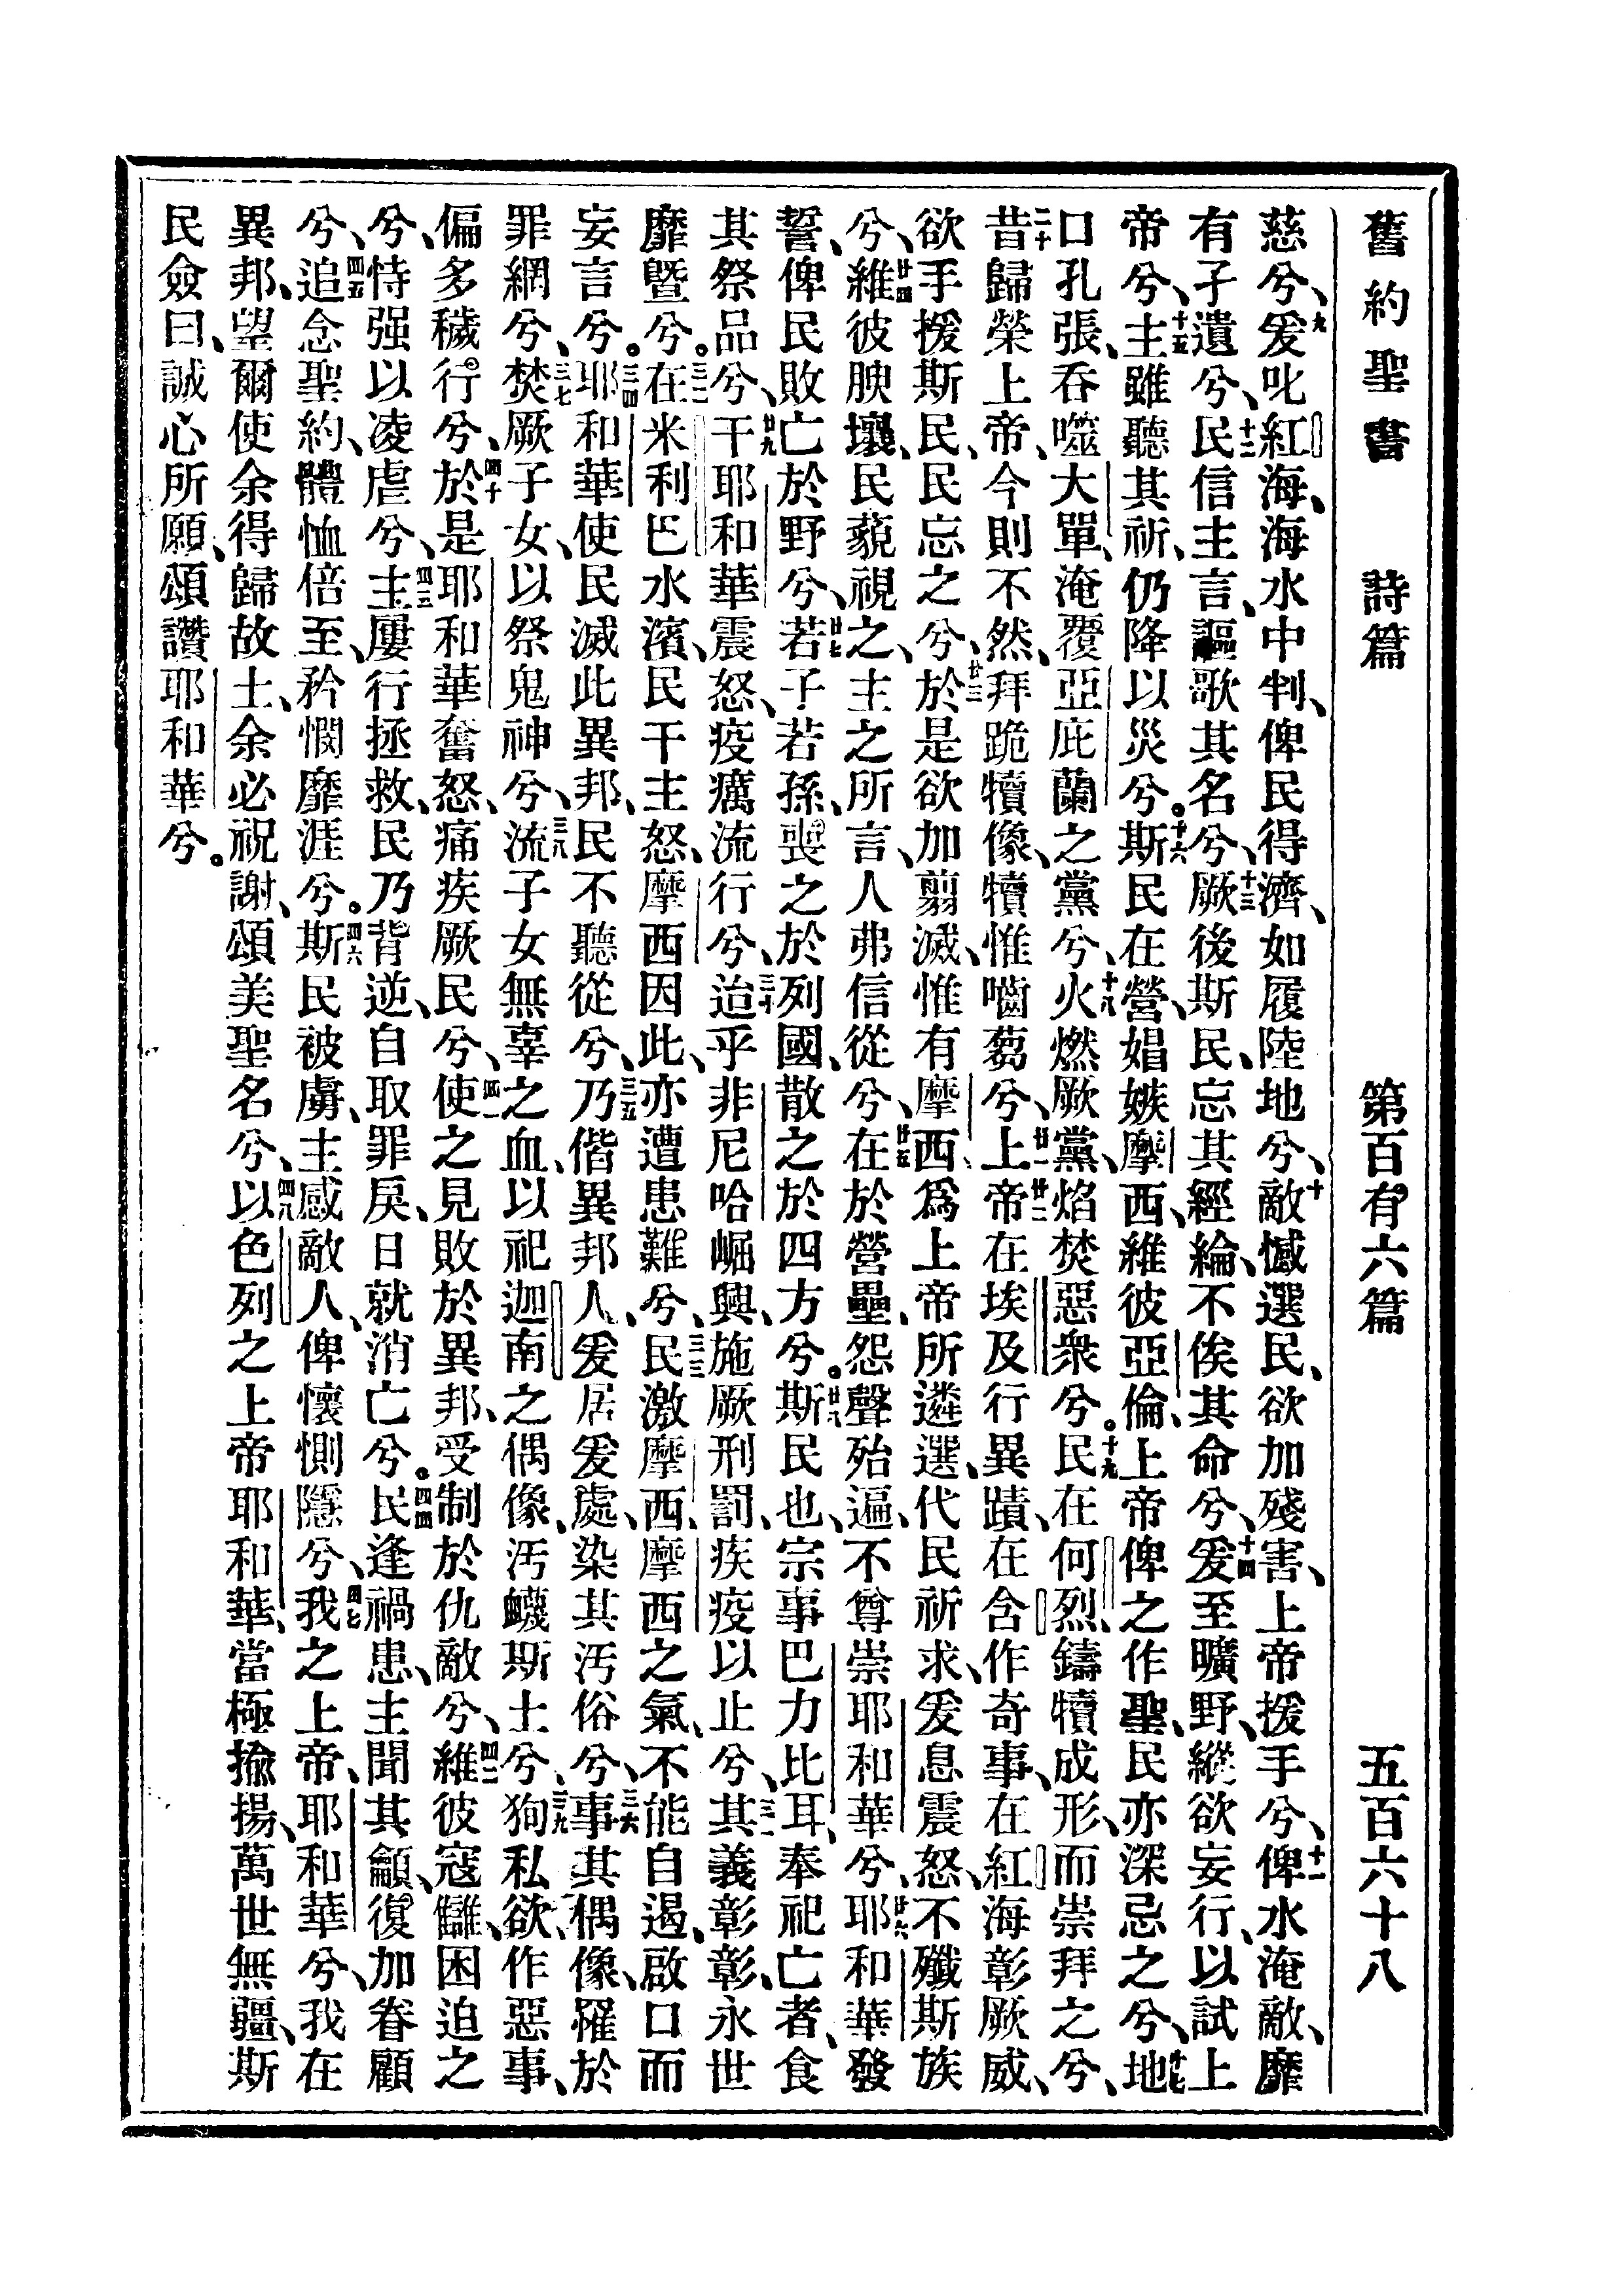 舊約聖書 詩篇 第百有六篇 五百六十八
慈兮、九爰叱紅海、海水中判、俾民得濟、如履陸地兮、十敵憾選民、欲加殘害、上帝援手兮、十一俾水淹敵、靡
有孑遺兮、十二民信主言、謳歌其名兮、十三厥後斯民、忘其經綸、不俟其命兮、十四爰至曠野、縱欲妄行、以試上
帝兮、十五主雖聽其祈、仍降以災兮。十六斯民在營、娼嫉摩西、維彼亞倫、上帝俾之作聖、民亦深忌之兮、十七地
口孔張、吞噬大單、淹覆亞庇蘭之黨兮、十八火燃厥黨、焰焚惡衆兮。十九民在何烈、鑄犢成形、而崇拜之兮、
二十昔歸榮上帝、今則不然、拜跪犢像、犢惟嚙芻兮、廿一上帝廿二在埃及行異蹟、在含作奇事、在紅海彰厥威、
欲手援斯民、民忘之兮、廿三於是欲加翦滅、惟有摩西、爲上帝所遴選、代民祈求、爰息震怒、不殲斯族
兮、廿四維彼腴壤、民藐視之、主之所言、人弗信從兮、廿五在於營壘、怨聲殆遍、不尊崇耶和華兮、廿六耶和華發
誓、俾民敗亡於野兮、廿七若子若孫、喪之於列國、散之於四方兮。廿八斯民也、宗事巴力比耳、奉祀亡者、食
其祭品兮、廿九干耶和華震怒、疫癘流行兮、三十迨乎非尼哈崛興、施厥刑罰、疾疫以止兮、三一其義彰彰、永世
靡曁兮。三二在米利巴水濱、民干主怒、摩西因此、亦遭患難兮、三三民激摩西、摩西之氣、不能自遏、啟口而
妄言兮。三四耶和華使民滅此異邦、民不聽從兮、三五乃偕異邦人、爰居爰處、染其汚俗兮、三六事其偶像、罹於
罪網兮、三七焚厥子女、以祭鬼神兮、三八流子女無辜之血、以祀迦南之偶像、汚衊斯土兮、三九狥私欲、作惡事、
偏多穢行兮、四十於是耶和華奮怒、痛疾厥民兮、四一使之見敗於異邦、受制於仇敵兮、四二維彼寇讎、困迫之
兮、恃强以凌虐兮、四三主屢行拯救、民乃背逆、自取罪戾、日就消亡兮。四四民逢禍患、主聞其籲、復加眷顧
兮、四五追念聖約、體恤倍至、矜憫靡涯兮。四六斯民被虜、主感敵人、俾懷惻隱兮、四七我之上帝、耶和華兮、我在
異邦、望爾使余得歸故土、余必祝謝、頌美聖名兮、四八以色列之上帝耶和華、當極揄揚、萬世無疆、斯
民僉曰、誠心所願、頌讚耶和華兮。